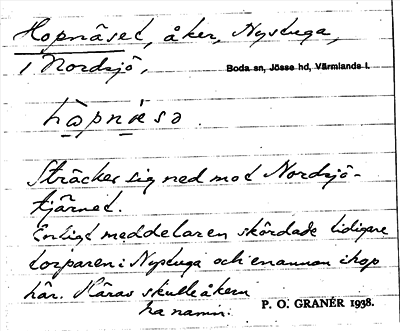 Hopnäset, åker, Nystuga,
i Nordsjö,
Boda sn, Jösse hd, Värmlands l.
hòpnɛ̀sə
Sträcker sig ned mot Nordsjö-
tjärnet.
Enligt meddelaren skördade tidigare
torparen i Nystuga och en annan ihop
här. Härav skulle åkern
ha namn.
P. O. GRANÉR 1938.